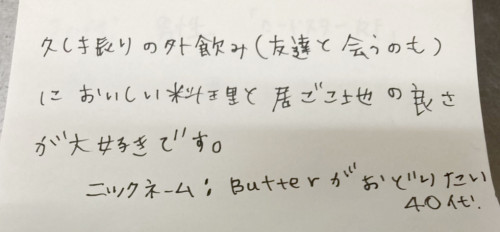 久しま振りの外飲み(友達と会うのも)
においしい料理と居ごこ地の良さ
が大好きです。
ニックネーム: Butterがおどりたい
40代